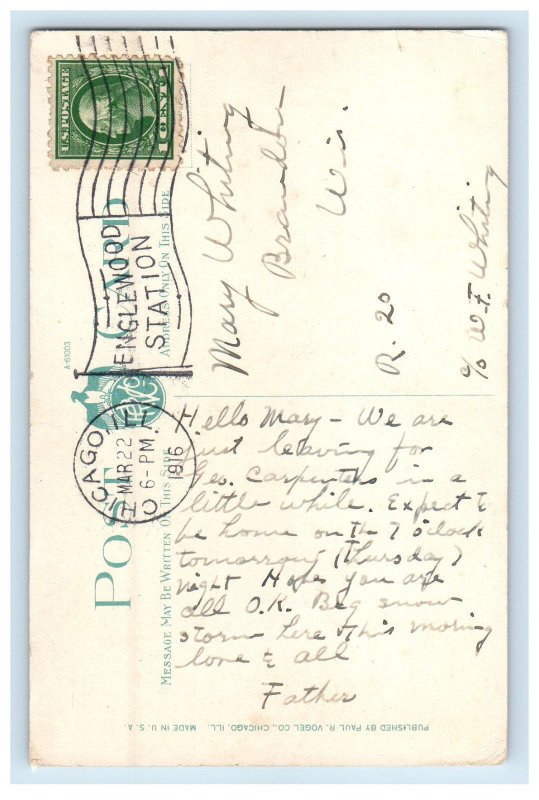 U.S. POSTAGE
1 CENT 1
ENGLEWOOD
STATION
CHICAGO, ILL.
MAR 22
6-PM.
1916
POST CARD
ADDRESS ONLY ON THIS SIDE
MESSAGE MAY BE WRITTEN ON THIS SIDE
A-61003
Mary Whiting
Brandon
Wis.
R. 20
c/o W.F. Whiting
Hello Mary - We are
just leaving for
Ges. Carpenters in a
little while. Expect to
be home on the 7 o'clock
tomorrow (Thursday)
night Hope you are
all O.K. Big snow
storm here this morning
love to all
Father
PUBLISHED BY PAUL R. VOGEL CO., CHICAGO, ILL. MADE IN U.S.A.